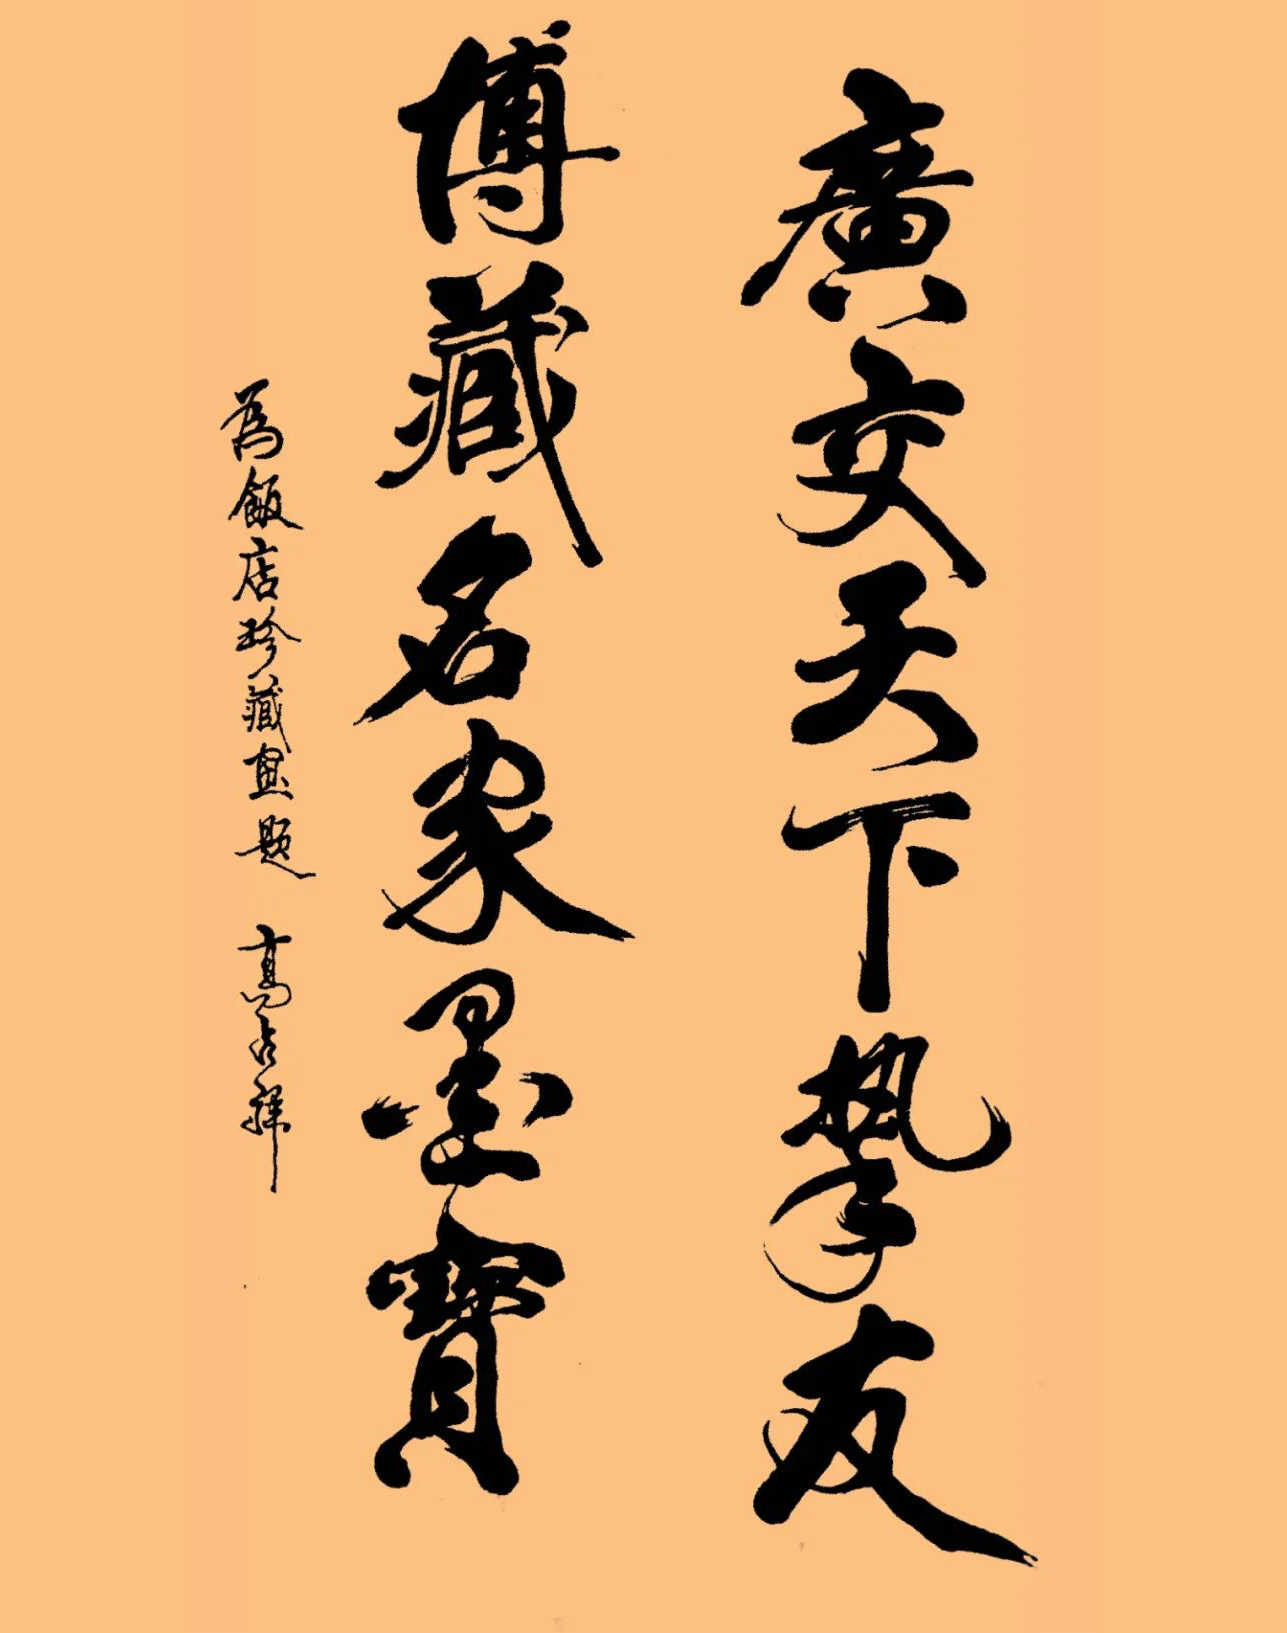 廣交天下摯友
博藏名家墨寶
為飯店珍藏畫題 高占祥